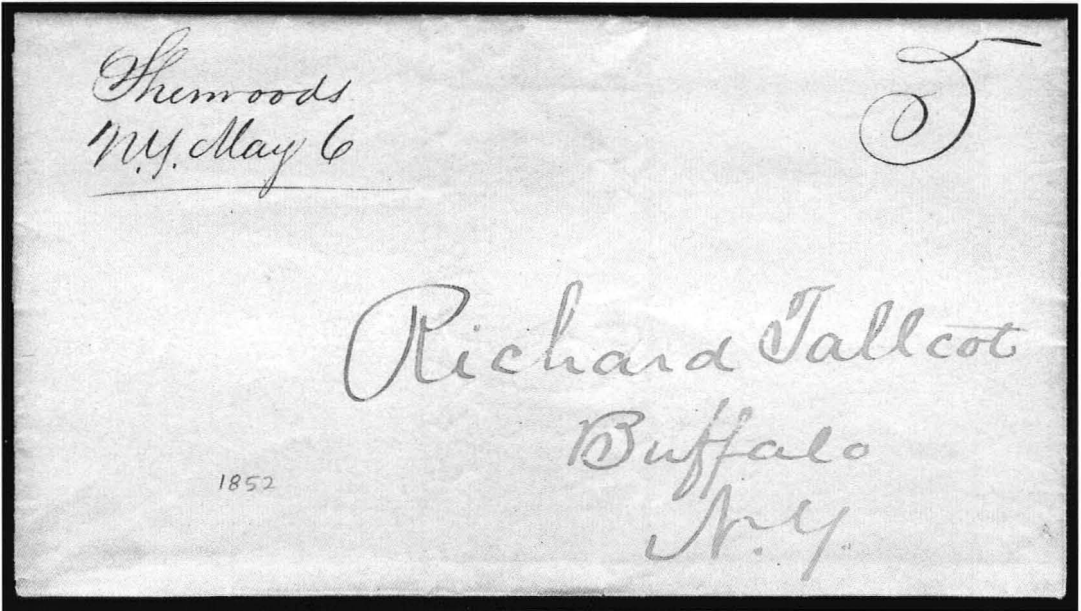 Sherwoods
N.Y. May 6
5
Richard Tallcot
Buffalo
N.Y.
1852